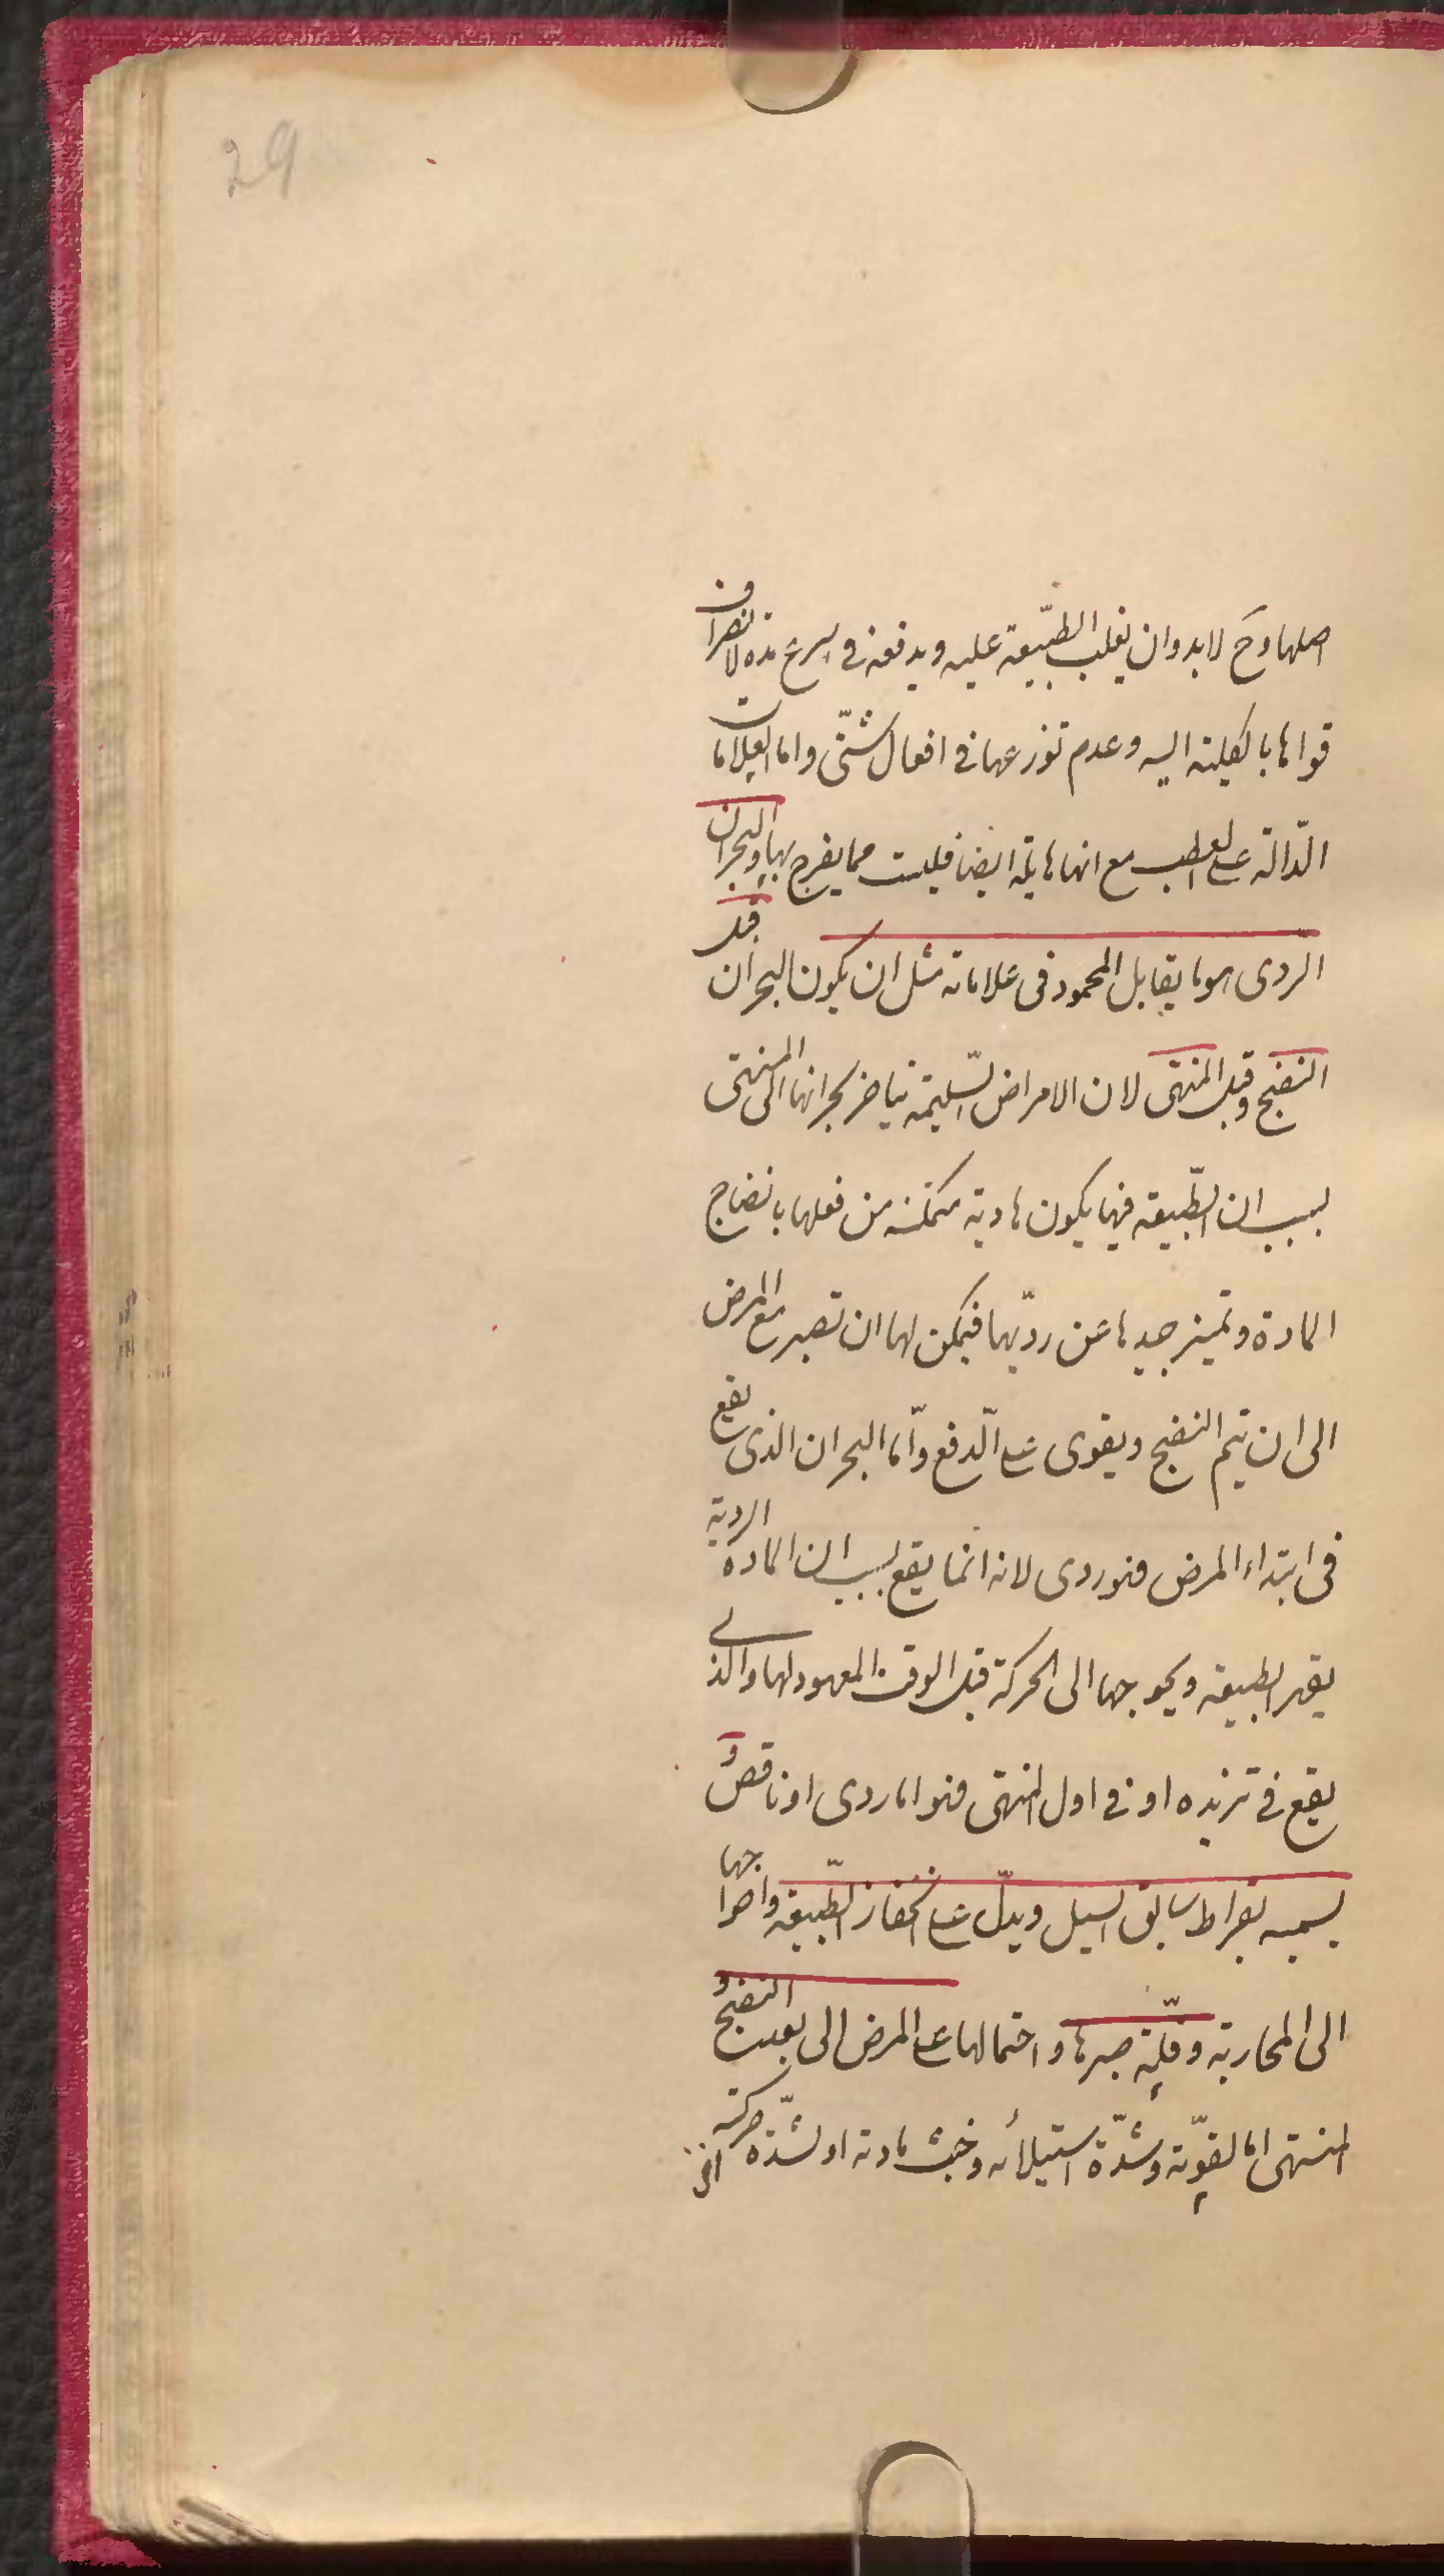 29
اصلها وح لا بد وان يغلب الطّبيعة عليه ويدفعه فى اسرع مدة لانصراف
قواها بالكلية اليه وعدم توزعها فى افعال شتّى واما العلامات
الدّالة على العطب مع انها هايلة ايضا فليست مما يفرح بها والبحران
الردى هو ما يقابل المحمود فى علاماته مثل ان يكون البحران قبل
النضج وقبل المنتهى لان الامراض السّليمة يتاخر بحرانها الى المنتهى
بسبب ان الطّبيعة فيها يكون هادية متمكنة من فعلها بانضاج
المادة وتميز جيدها عن رديّها فيمكن لها ان تصبر مع المرض
الى ان يتم النضج ويقوى على الدّفع وامّا البحران الذى يقع
فى ابتداء المرض فهو ردى لانه انما يقع بسبب ان المادة الردية
يقهر الطبيعة ويحوجها الى الحركة قبل الوقت المعهود لها والذى
يقع فى تزيده او فى اول المنتهى فهو اما ردى او ناقص و
يسميه بقراط سابق السيل ويدلّ على انحفاز الطّبيعة واحواجها
الى المحاربة وقلّة صبرها واحتمالها على المرض الى بعيد النضج و
المنتهى اما لقوّته وشدّة استيلائه وخبث مادته او لشدّة حركته